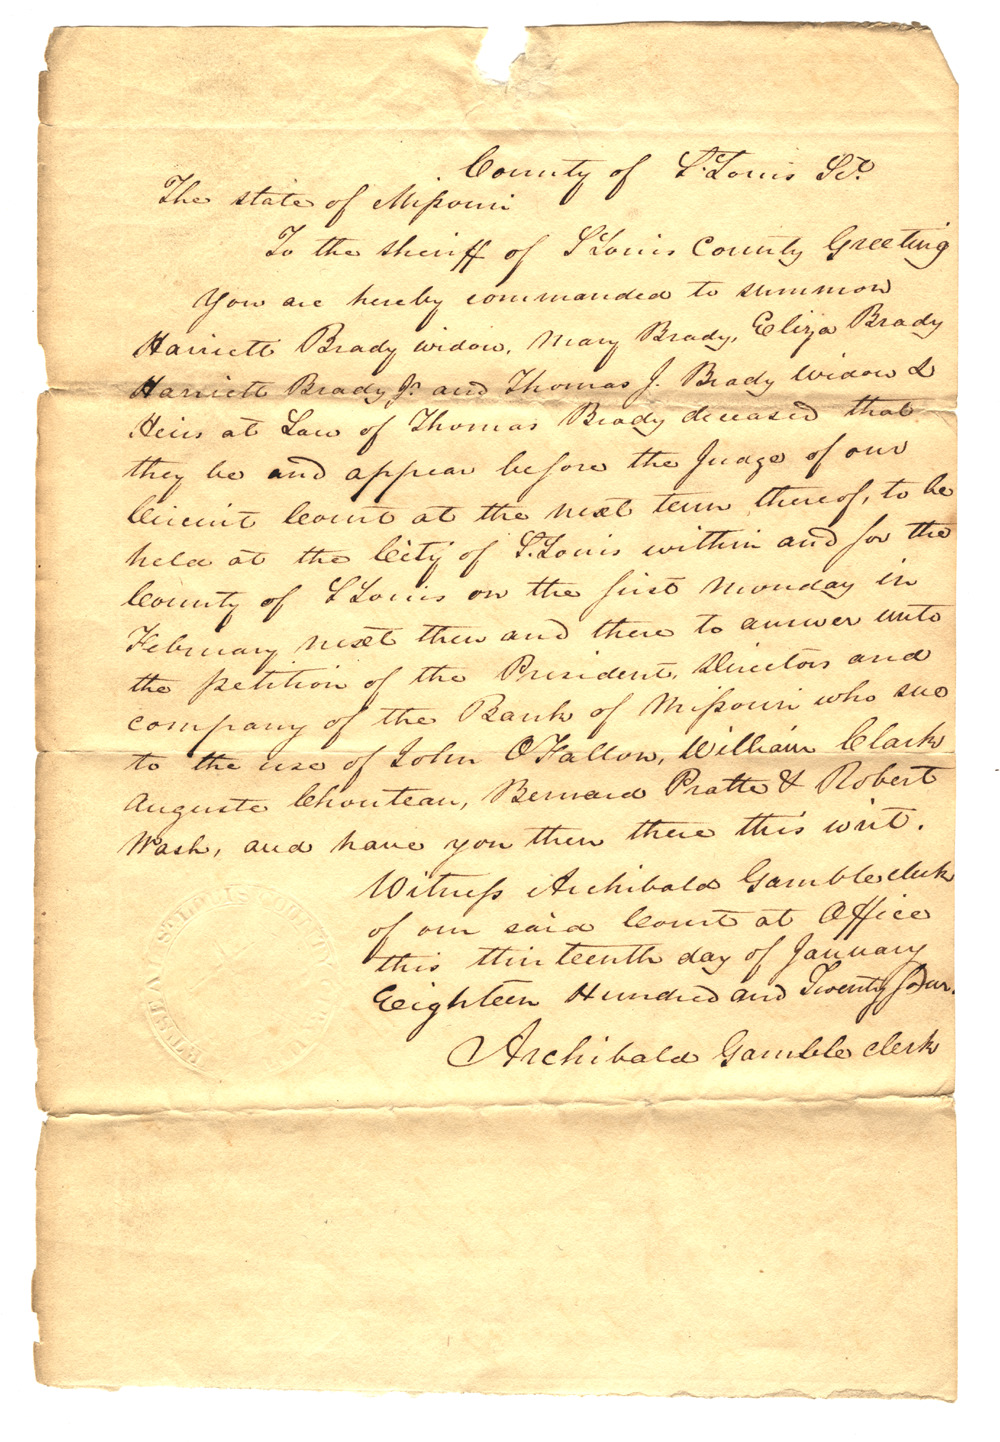 County of St. Louis Sct.
The state of Missouri
To the sheriff of St Louis County Greeting
You are hereby commanded to summon
Harriett Brady widow, Mary Brady, Eliza Brady
Harriett Brady Jr. and Thomas J. Brady Widow &
Heirs at Law of Thomas Brady deceased that
they be and appear before the Judge of our
Circuit Court at the next term thereof, to be
held at the City of St. Louis within and for the
County of St Louis on the first Monday in
February next then and there to answer unto
the petition of the President, Directors and
company of the Bank of Missouri who sue
to the use of John O'Fallon, William Clark
Auguste Chouteau, Bernard Pratte & Robert
Wash, and have you then there this writ.
Witness Archibald Gamble clerk
of our said Court at Office
this thirteenth day of January
Eighteen Hundred and Twenty four.
Archibald Gamble clerk